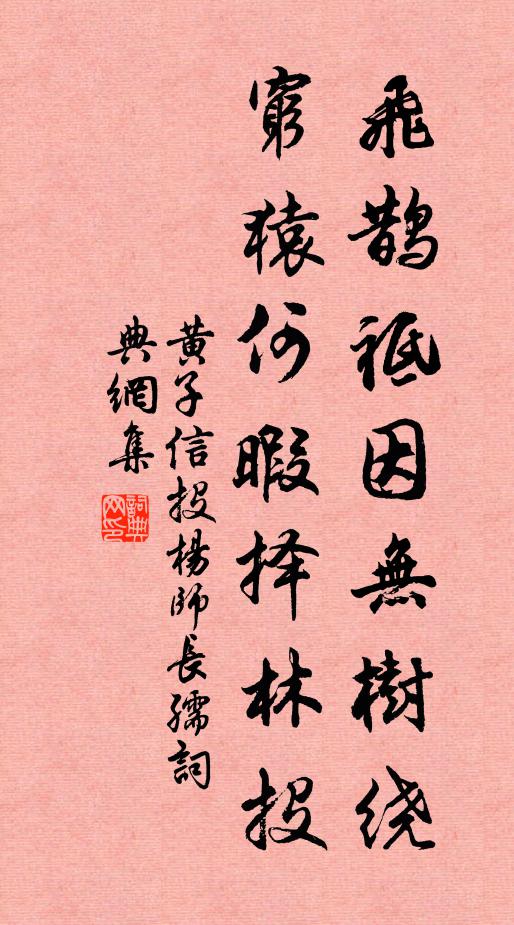 飛鵲祗因無樹绕
窮猿何暇择林投
黄子信投楊師長孺詞
典網集
詞典
网印